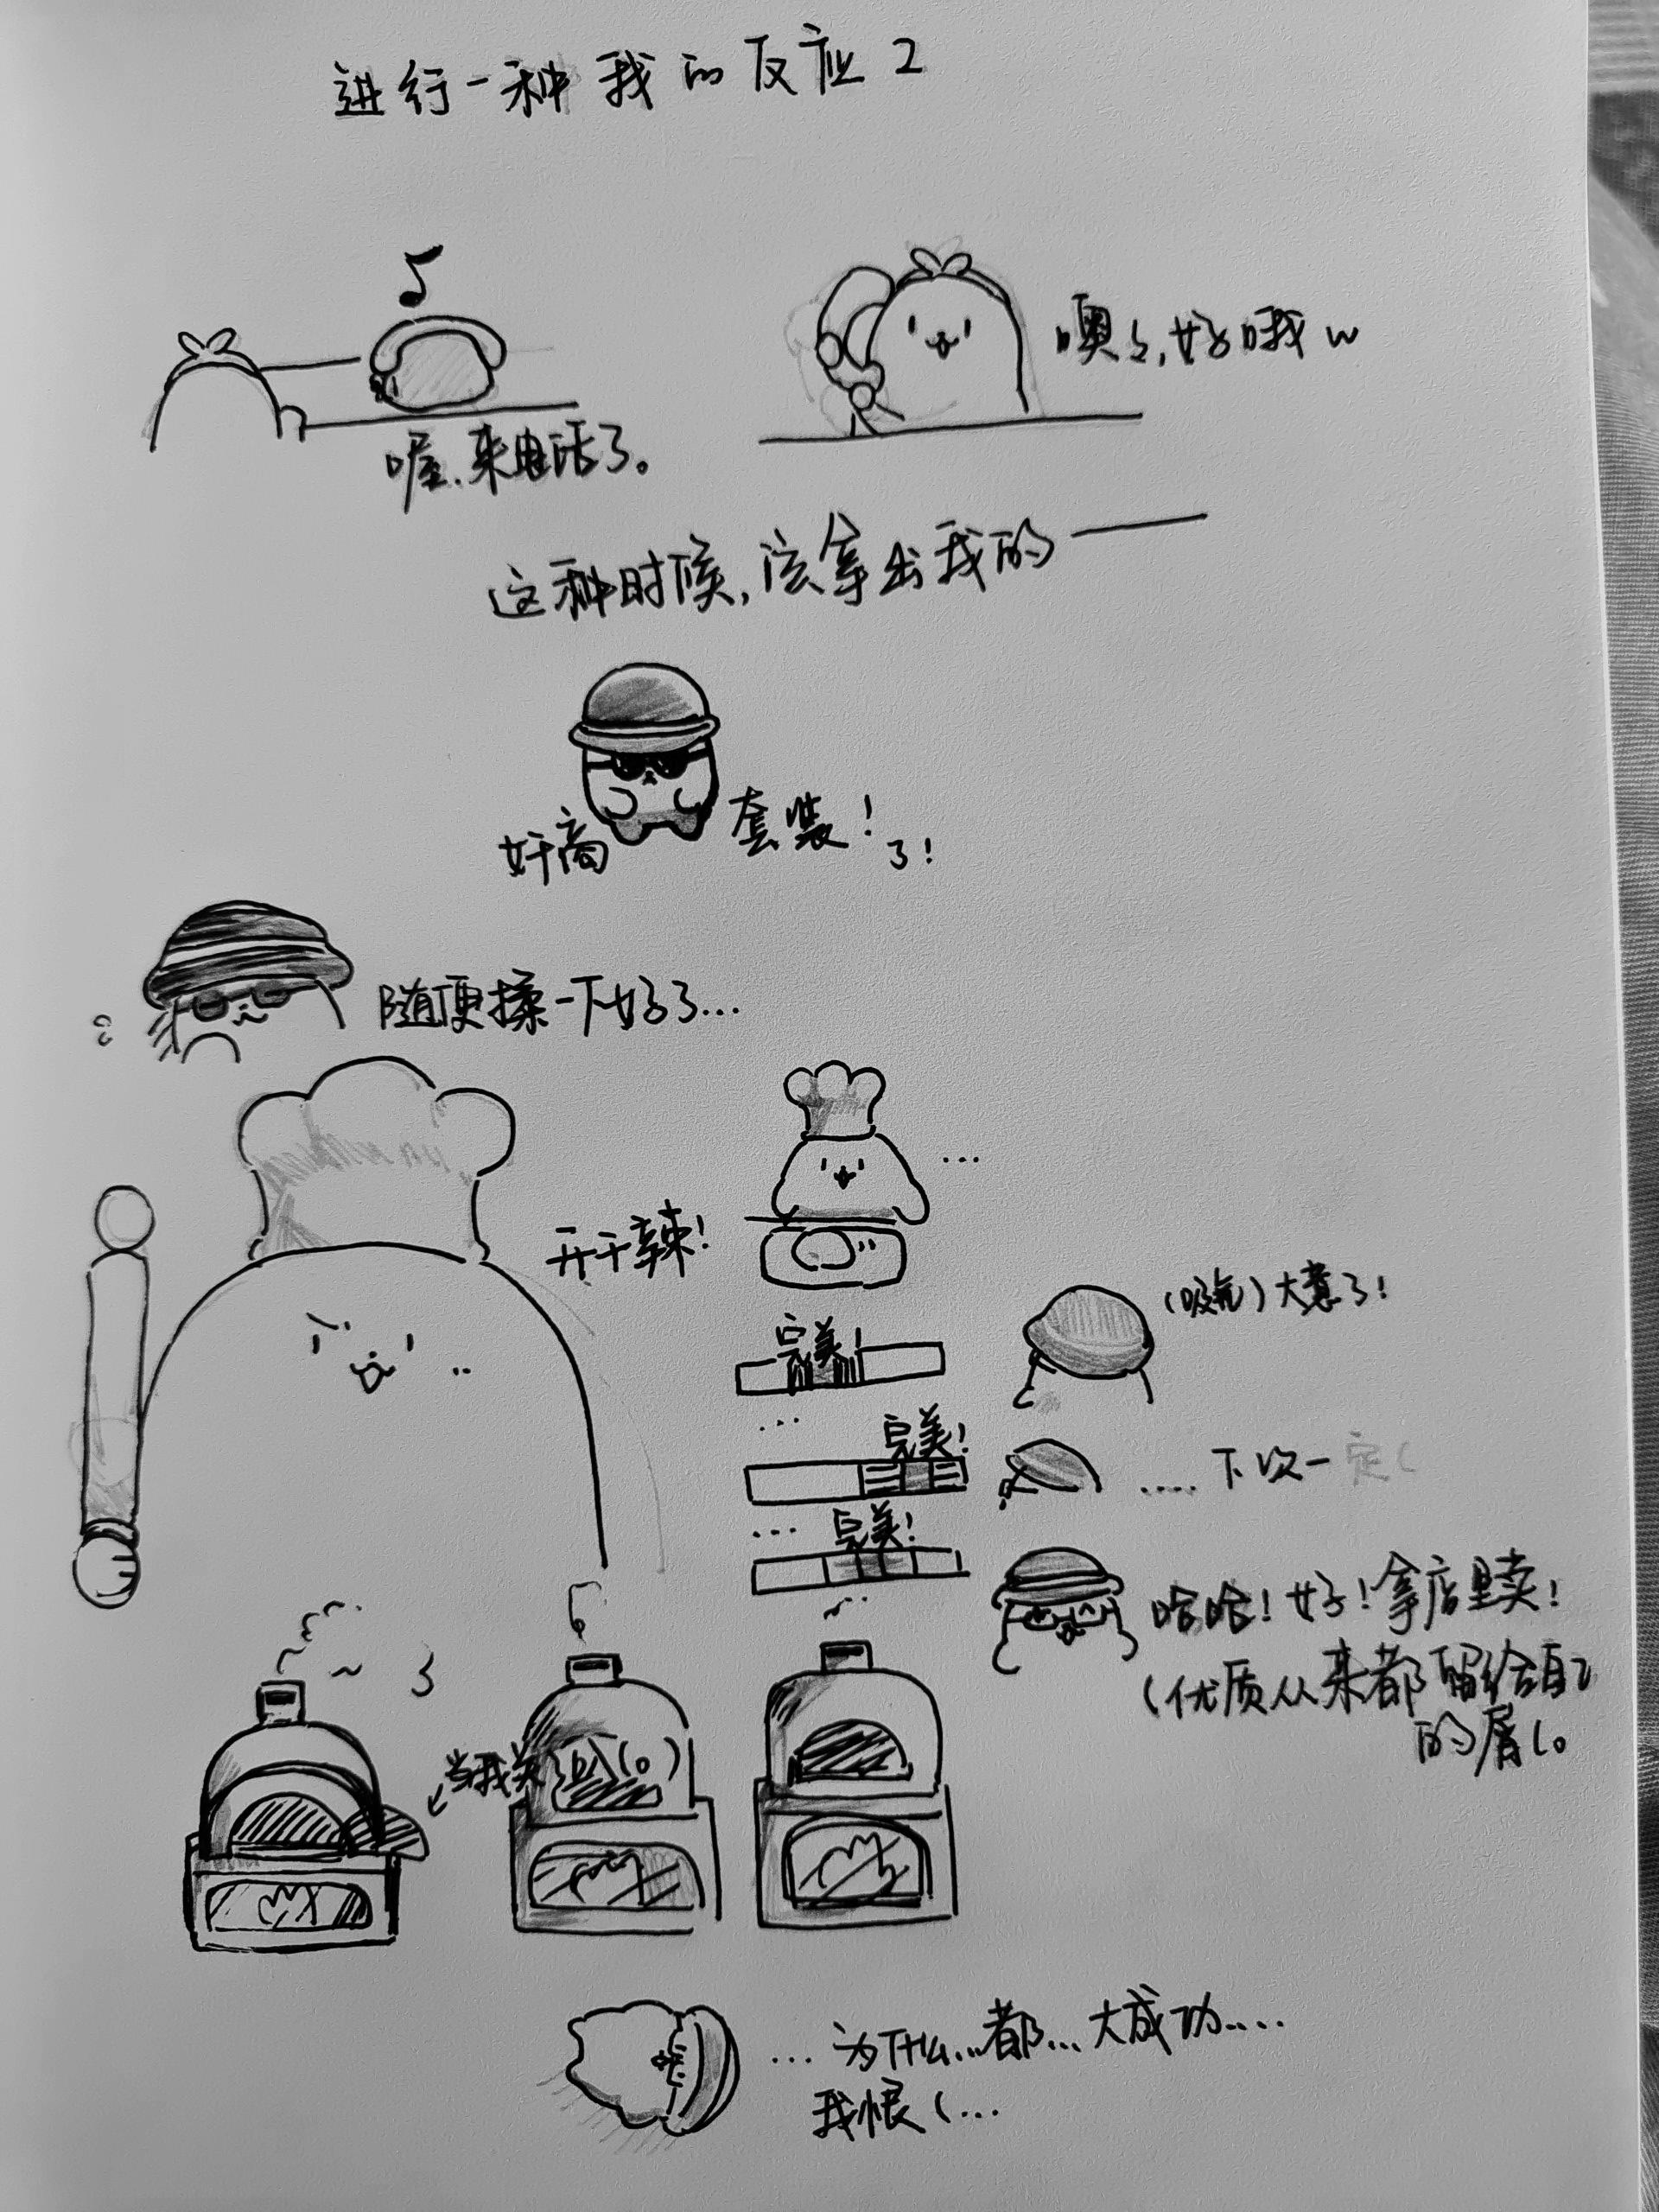 进行一种我的反应2
喔、来电话了。
噢~,好哦w
这种时候,该拿出我的——
奸商套装!
了!
随便揉一下好了...
开干辣!
...
完美!
(吸气)大意了!
...
完美!
.... 下次一定(
...
完美!
哈哈!好!拿店里卖!
(优质从来都留给自己
的屑(。
...为什么...都...大成功....
我恨(...